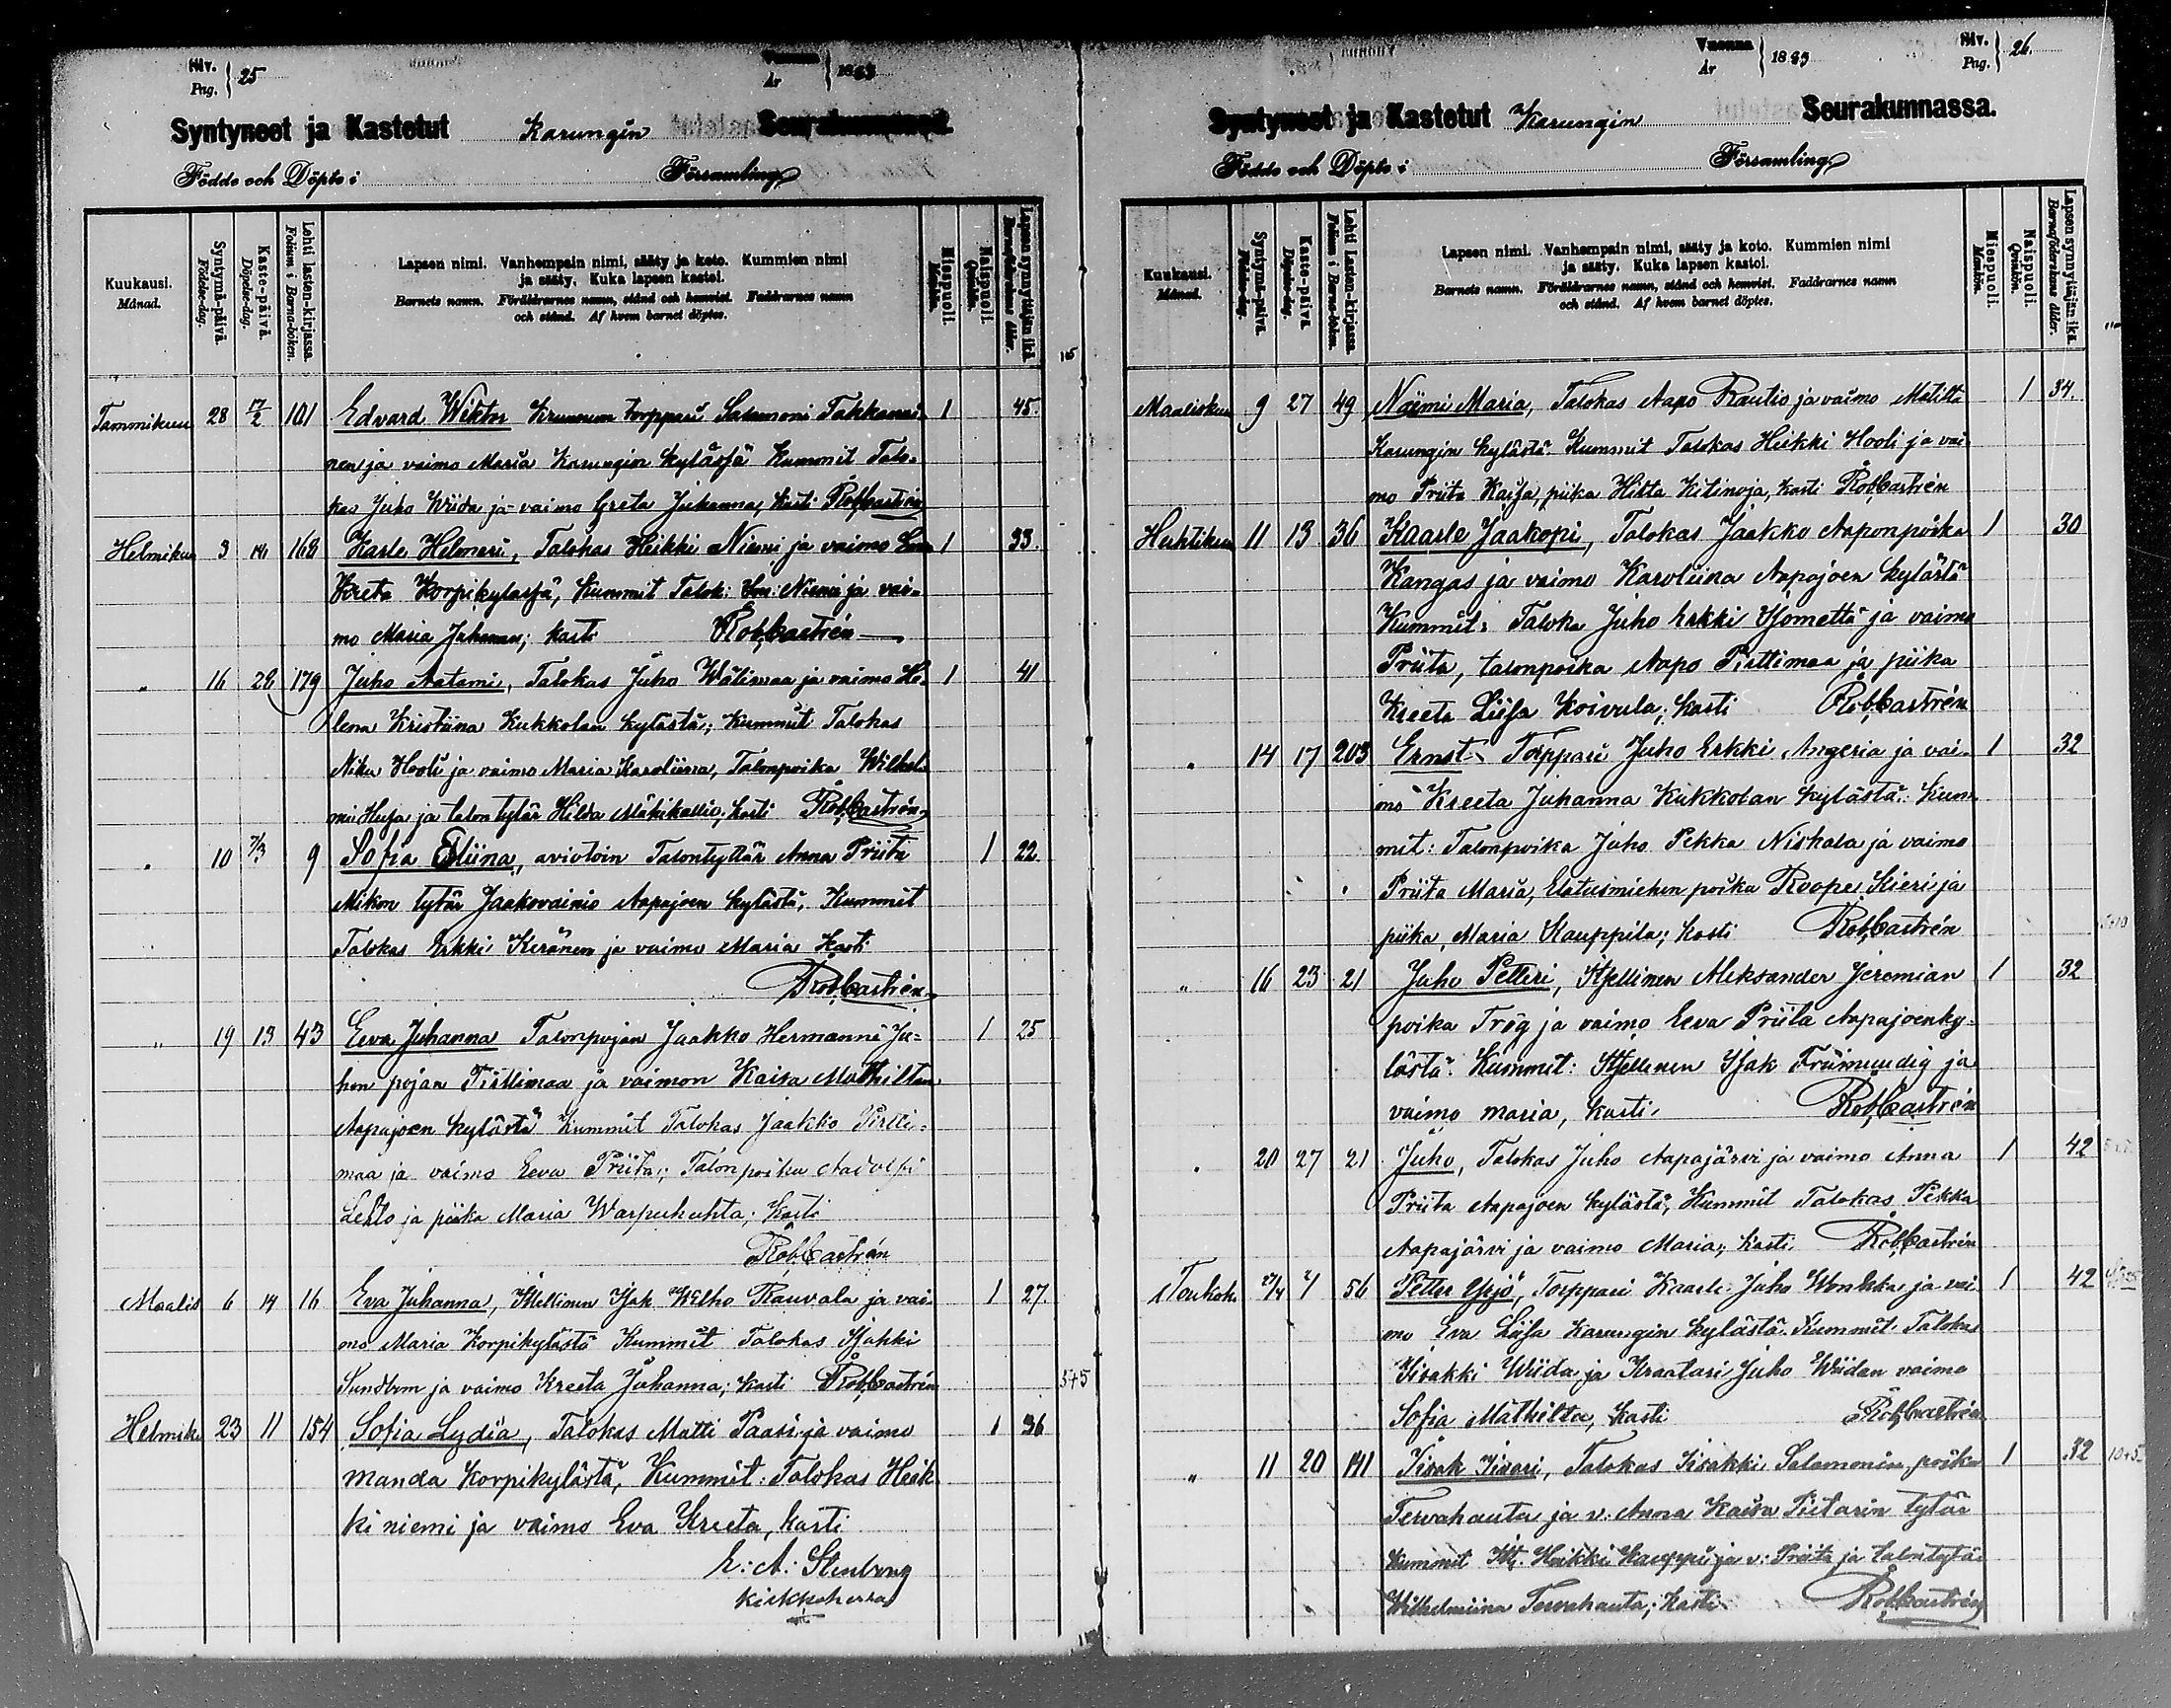 Siv. Pag. } 25
Vuonna År } 1893
Syntyneet ja Kastetut Karungin Seurakunnassa.
Födde och Döpte i Församling
Kuukausi. Månad.
Syntymä-päivä. Födelse-dag.
Kaste-päivä. Döpelse-dag.
Lehti lasten-kirjassa. Folium i Barna-boken.
Lapsen nimi. Vanhempain nimi, sääty ja koto. Kummien nimi
ja sääty. Kuka lapsen kastoi.
Barnets namn. Föräldrarnes namn, stånd och hemvist. Faddrarnes namn
och stånd. Af hvem barnet döptes.
Miespuoli. Mankön.
Naispuoli. Qvinkön.
Lapsen synnyttäjän ikä. Barnaföderskans ålder.
Tammikuu 28 17/2 101 Edvard Wiktor Kruunun torppari Salamoni Takkunai- 1 45.
nen ja vaimo Maria Karungin kylässä Kummit Talo-
kas Juho Wiida ja vaimo Greta Juhanna, Kasti Rob. Castrén
Helmikuu 3 14 168 Karle Helmeri, Talokas Heikki Niemi ja vaimo 1 33.
Kreta Korpikylässä, Kummit Talok: Niemi ja vai-
mo Maria Juhanna; kasti Rob. Castrén
" 16 28 179 Juho Aatami, Talokas Juho Wälimaa ja vaimo He- 1 41
lena Kristiina Kukkolan kylästä; Kummit Talokas
Niku Hooli ja vaimo Maria Karoliina, Talonpoika Wilhel-
mi Husa ja talon tytär Hilda Mäkikallio, kasti Rob. Castrén
" 10 7/3 9 Sofia Eliina, aviotoin Talontyttär Anna Priita 1 22.
Mikon tytär Jaakovainio Aapajoen kylästä, Kummit
Talokas Erkki Keränen ja vaimo Maria Kasti
Rob. Castrén
" 19 13 43 Eeva Juhanna Talonpojan Jaakko Hermanni Ju- 1 25
hon pojan Pirttimaa ja vaimon Kaisa Mathiltan
Aapajoen kylästä Kummit Talokas Jaakko Pirtti-
maa ja vaimo Eeva Priita; Talonpoika Aadolfi
Lehto ja piika Maria Warpuhuhta; Kasti
Rob. Castrén
Maalis 6 14 16 Eva Juhanna, Itsellinen Isak Wilho Rauvala ja vai- 1 27.
mo Maria Korpikylästä Kummit Talokas Isakki
Sundbom ja vaimo Kreeta Johanna; kasti Rob. Castrén
Helmik. 23 11 154 Sofia Lydia, Talokas Matti Paasi ja vaimo 1 36
Manda Korpikylästä, Kummit: Talokas Heik-
ki niemi ja vaimo Eva Kreeta, kasti
A: Stenberg
kirkkoherra
Vuonna År } 1893
Siv. Pag. } 26.
Syntyneet ja Kastetut Karungin Seurakunnassa.
Födde och Döpte i Församling
Kuukausi. Månad.
Syntymä-päivä. Födelse-dag.
Kaste-päivä. Döpelse-dag.
Lehti lasten-kirjassa. Folium i Barna-boken.
Lapsen nimi. Vanhempain nimi, sääty ja koto. Kummien nimi
ja sääty. Kuka lapsen kastoi.
Barnets namn. Föräldrarnes namn, stånd och hemvist. Faddrarnes namn
och stånd. Af hvem barnet döptes.
Miespuoli. Mankön.
Naispuoli. Qvinkön.
Lapsen synnyttäjän ikä. Barnaföderskans ålder.
Maaliskuu 9 27 49 Naimi Maria, Talokas Aapo Rautio ja vaimo Matilta 1 34.
Karungin kylästä. Kummit Talokas Heikki Hooli ja vai-
mo Priita Kaisa, piika Hilta Kitinoja, kasti Rob. Castrén
Huhtikuu 11 13 36 Kaarle Jaakopi, Talokas Jaakko Aaponpoika 1 30
Kangas ja vaimo Karoliina Aapajoen kylästä
Kummit: Taloka Juho Erkki Isometsä ja vaimo
Priita, talonpoika Aapo Pirttimaa ja piika
Kreeta Liisa Koivula; kasti Rob. Castrén
" 14 17 203 Ernst Torppari Juho Erkki Angeria ja vai- 1 32
mo Kreeta Juhanna Kukkolan kylästä: Kum-
mit: Talonpoika Juho Pekka Niskala ja vaimo
Priita Maria, Elatusmiehen poika Roope Kieri ja
piika, Maria Kauppila; kasti Rob. Castrén
" 16 23 21 Juho Petteri, Itsellinen Aleksander Jeremian 1 32
poika Trög ja vaimo Eeva Priita Aapajoenky-
lästä. Kummit: Itsellinen Isak Friimuudig ja
vaimo maria, kasti, Rob. Castrén
" 20 27 21 Juho, Talokas Juho Aapajärvi ja vaimo Anna 1 42
Priita Aapajoen kylästä, Kummit Talokas Pekka
Aapajärvi ja vaimo Maria; kasti. Rob. Castrén
Toukok. 27/4 7 56 Petter Yrjö, Torppari Kaarle Juho Wonkka ja vai- 1 42
mo Eva Liisa Karungin kylästä. Kummit Talokas
Iisakki Wiida ja Kraatari Juho Wiidan vaimo
Sofia Mathilta, kasti Rob. Castrén
" 11 20 141 Iisak Iivari, Talokas Iisakki Salamonin poika 1 32
Tervahauta ja v. Anna Kaisa Pietarin tytär
Kummit Itj. Heikki Kauppi ja v: Priita ja talon tytär
Wilhelmiina Tervahauta; Kasti Rob. Castrén